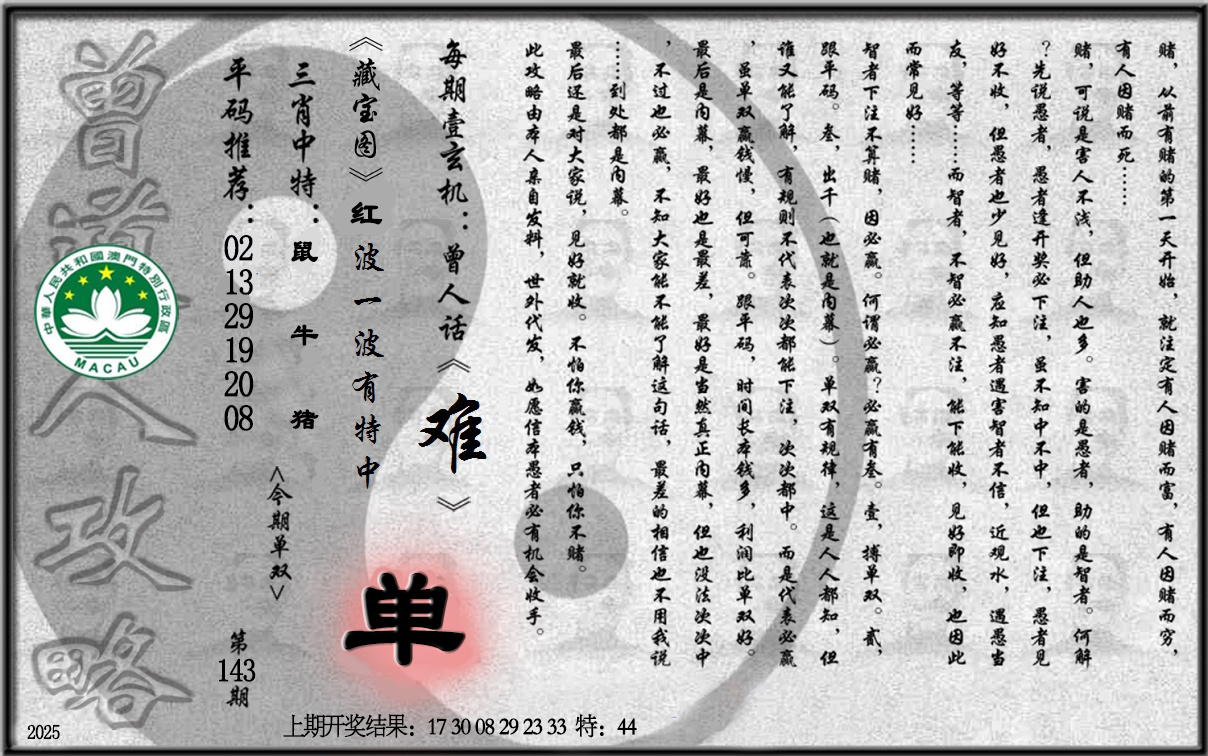 赌，从前有赌的第一天开始，就注定有人因赌而富，有人因赌而穷，
有人因赌而死……
赌，可说是害人不浅，但助人也多。害的是愚者，助的是智者。何解
？先说愚者，愚者逢开奖必下注，虽不知中不中，但也下注，愚者见
好不收，但愚者也少见好，应知愚者遇害智者不信，近观水，遇愚当
友，等等……而智者，不智必赢不注，能下能收，见好即收，也因此
而常见好……
智者下注不算赌，因必赢。何谓必赢？必赢有叁。壹，搏单双。贰，
跟平码。叁，出千（也就是内幕）。单双有规律，这是人人都知，但
谁又能了解，有规则不代表次次都能下注，次次都中。而是代表必赢
，虽单双赢钱慢，但可靠。跟平码，时间长本钱多，利润比单双好。
最后是内幕，最好也是最差，最好是当然真正内幕，但也没法次次中
，不过也必赢，不知大家能不能了解这句话，最差的相信也不用我说
……到处都是内幕。
最后还是对大家说，见好就收。不怕你赢钱，只怕你不赌。
此攻略由本人亲自发料，世外代发，如愿信本愚者必有机会收手。
每期壹玄机：曾人话《难》
《藏宝图》红波一波有特中
单
三肖中特：鼠 牛 猪
<今期单双>
平码推荐：02 13 29 19 20 08
第143期
曾道人攻略
中華人民共和國澳門特別行政區
MACAU
上期开奖结果：17 30 08 29 23 33 特：44
2025